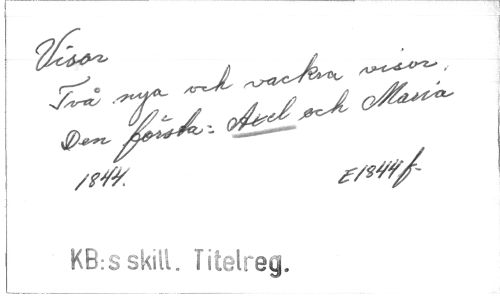 Visor
Två nya och vackra visor.
Den första: Axel och Maria
1844. E1844f
KB:s skill. Titelreg.